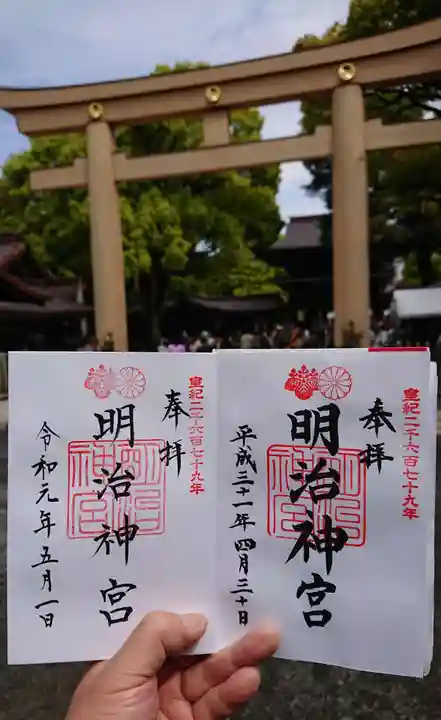 皇紀二千六百七十九年
奉拝
明治神宮
明治神宮
平成三十一年四月三十日
皇紀二千六百七十九年
奉拝
明治神宮
明治神宮
令和元年五月一日